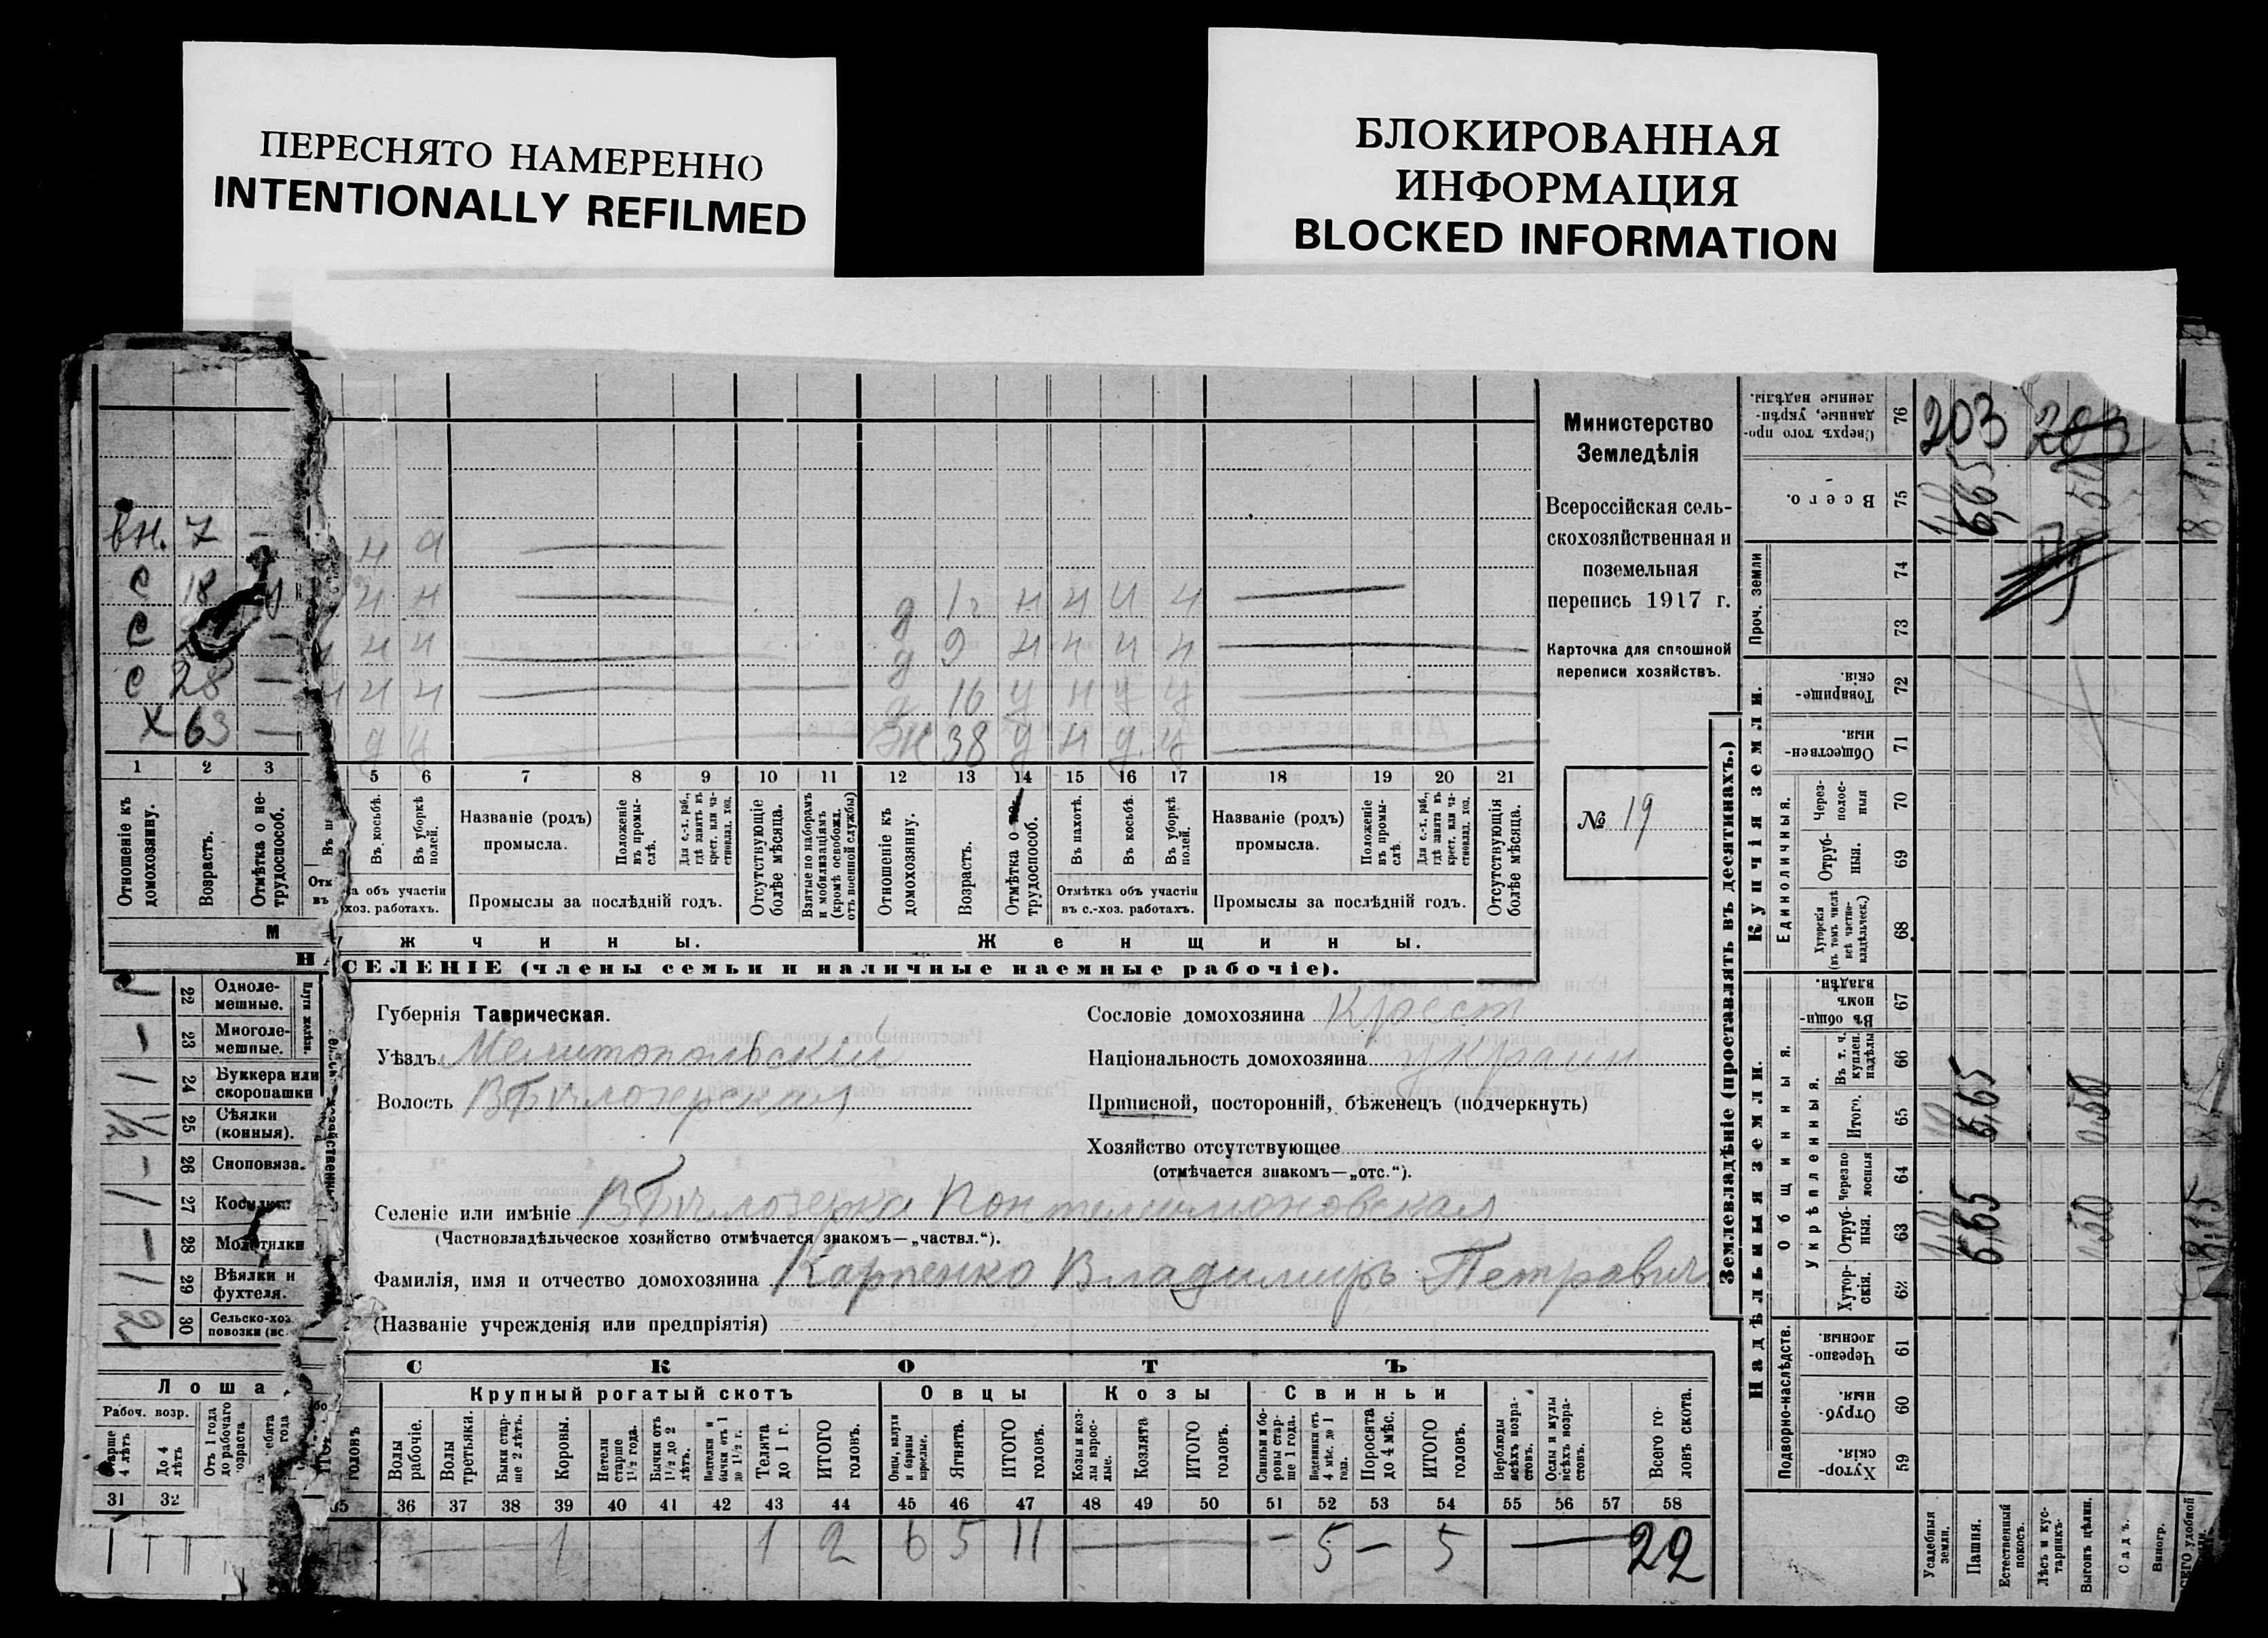 ПЕРЕСНЯТО НАМЕРЕННО
INTENTIONALLY REFILMED
БЛОКИРОВАННАЯ
ИНФОРМАЦИЯ
BLOCKED INFORMATION
Министерство
Земледѣлія
Всероссійская сель-
скохозяйственная и
поземельная
перепись 1917 г.
Карточка для сплошной
переписи хозяйствъ.
№ 19
вн. 7 —
с 18
с —
с 28 —
х 63 —
д 12 н н н н
д 9 н н н н
16 у н у у
Ж 38 у н у у
1 2 3 5 6 7 8 9 10 11 12 13 14 15 16 17 18 19 20 21
Отношеніе къ домохозяину.
Возрастъ.
Отмѣтка о не-трудоспособ.
Въ косьбѣ.
Въ уборкѣ полей.
Названіе (родъ) промысла.
Положеніе въ промы-слѣ.
Для с.-х. раб., гдѣ занятъ въ крест. или ча-стновлад. хоз.
Отсутствующіе болѣе мѣсяца.
Взятые по наборамъ и мобилизаціямъ (кромѣ освобожд. отъ военной службы)
Отношеніе къ домохозяину.
Возрастъ.
Отмѣтка о трудоспособ.
Въ пахотѣ.
Въ косьбѣ.
Въ уборкѣ полей.
Названіе (родъ) промысла.
Положеніе въ промы-слѣ.
Для с.-х. раб., гдѣ занята въ крест. или ча-стновлад. хоз.
Отсутствующія болѣе мѣсяца.
объ участіи
хоз. работахъ.
Промыслы за послѣдній годъ.
Отмѣтка объ участіи
въ с.-хоз. работахъ.
Промыслы за послѣдній годъ.
М жчины.
Женщины.
СЕЛЕНІЕ (члены семьи и наличные наемные рабочіе).
22 Одноле-мешные.
— 23 Многоле-мешные.
Плуги желѣзн.
1 24 Буккера или скоропашки
1/2 25 Сѣялки (конныя).
— 26 Сноповяза.
1 27 Косилки
— 28 Молотилки
1 29 Вѣялки и фухтеля.
2 30 Сельско-хоз. повозки
Губернія Таврическая.
Уѣздъ Мелитопольскій
Волость ВБѣлозерская
Сословіе домохозяина Крест
Національность домохозяина украин
Приписной, посторонній, бѣженецъ (подчеркнуть)
Хозяйство отсутствующее
(отмѣчается знакомъ—„отс.“).
Селеніе или имѣніе ВБѣлозерка Понтелеимоновская
(Частновладѣльческое хозяйство отмѣчается знакомъ—„частвл.“).
Фамилія, имя и отчество домохозяина Карпенко Владимиръ Петровичъ
(Названіе учрежденія или предпріятія)
СКОТЪ
Лоша
Рабоч. возр.
До 4 лѣтъ
Отъ 1 года до рабочаго возраста
Крупный рогатый скотъ
Овцы
Козы
Свиньи
головъ
Волы рабочіе.
Волы третьяки.
Быки стар-ше 2 лѣтъ.
Коровы.
Нетели старше 1½ года.
Бычки отъ 1½ до 2 лѣтъ.
Подтелки и бычки отъ 1 до 1½ г.
Телята до 1 г.
ИТОГО головъ.
Овцы, валухи и бараны взрослые.
Ягнята.
ИТОГО головъ.
Козы и коз-лы взрос-лые.
Козлята
ИТОГО головъ.
Свиньи и бо-ровы стар-ше 1 года.
Подсвинки отъ 4 мѣс. до 1 года.
Поросята до 4 мѣс.
ИТОГО головъ.
Верблюды всѣхъ возра-стовъ.
Ослы и мулы всѣхъ возра-стовъ.
Всего го-ловъ скота.
31 32 35 36 37 38 39 40 41 42 43 44 45 46 47 48 49 50 51 52 53 54 55 56 57 58
1 1 2 6 5 11 — — 5 — 5 — 22
Землевладѣніе (проставлять въ десятинахъ.)
Надѣльныя земли.
Купчія земли.
Проч. земли
Подворно-наслѣдств.
Общинныя.
Укрѣпленныя.
Единоличныя.
Сверхъ того про-данные, укрѣп-ленные надѣлы. 76 203
Всего. 75 6,65
74
73
Товарище-скія. 72
Обществен-ныя. 71
Через-полос-ныя 70
Отруб-ныя. 69
Хуторскія (въ томъ числѣ всѣ частно-владѣльческ.) 68
Въ общи-номъ владѣн. 67
Въ т. ч. куплен. надѣлы 66
Итого. 65 6,65 0.50
Черезпо-лосныя 64
Отруб-ныя. 63 6,65 0.50 8,15
Хутор-скія. 62
Черезпо-лосныя. 61
Отруб-ныя. 60
Хутор-скія. 59
Усадебныя земли.
Пашня.
Естественный покосъ.
Лѣсъ и кус-тарникъ.
Выгонъ цѣлин.
Садъ.
Виногр.
удобной